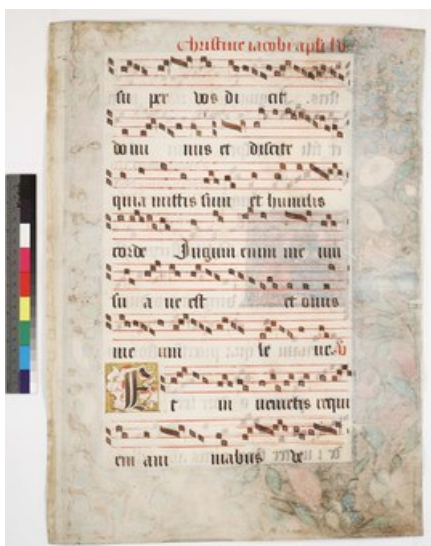 Christine iacobi apli
su per vos di cit
domi nus et discite
quia mittis sum et humilis
corde Iugum enim me um
su a ve est et onus
me um le ve. V
E t in venietis requi
em ani mabus ve